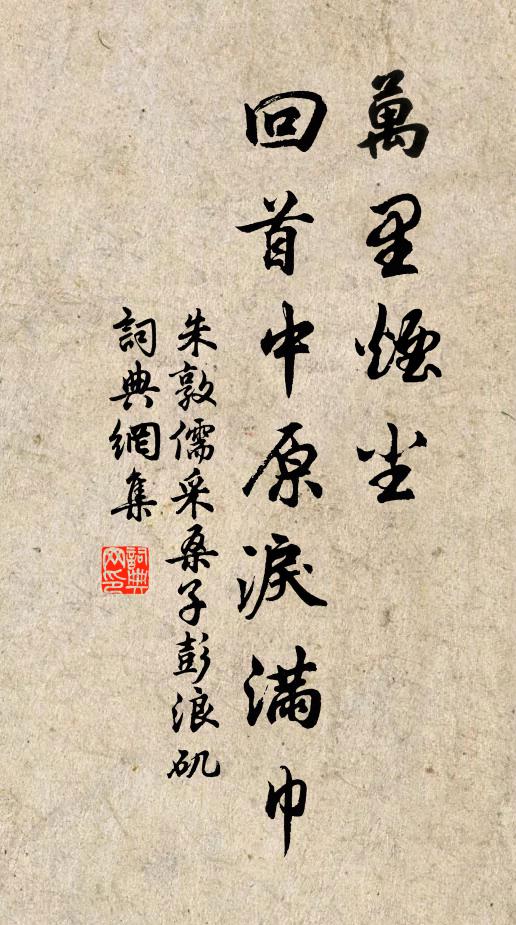 萬里煙尘
回首中原淚滿巾
朱敦儒采桑子彭浪矶
詞典網集
詞典网印